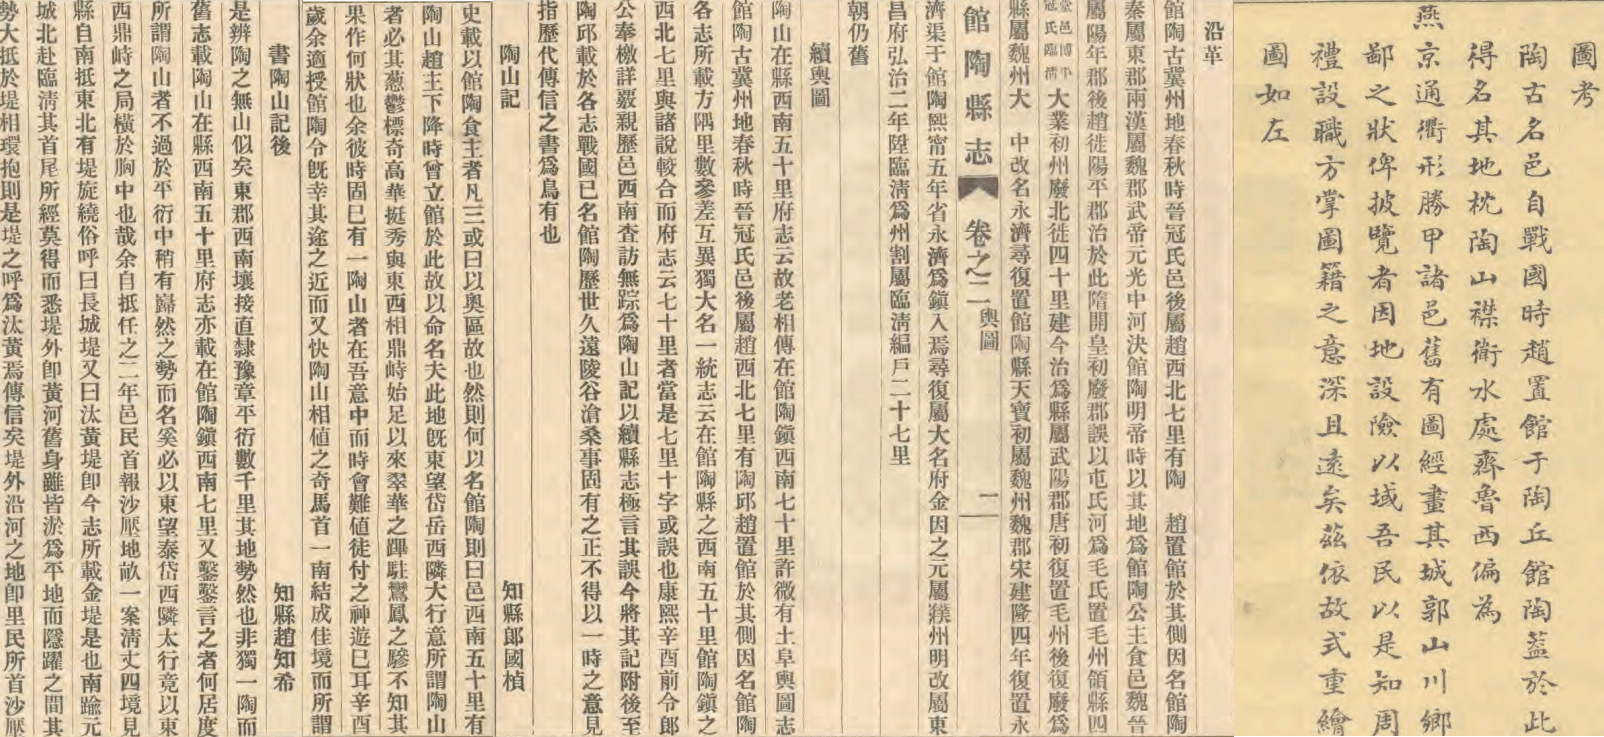 圖考
陶古名邑自戰國時趙置館于陶丘館陶蓋於此
得名其地枕陶山襟衛水處齊魯西偏為
燕京通衢形勝甲諸邑舊有圖經畫其城郭山川鄉
鄙之狀俾披覽者因地設險以域吾民以是知周
禮設職方掌圖籍之意深且遠矣茲依故式重繪
圖如左
沿革
館陶古冀州地春秋時晉冠氏邑後屬趙西北七里有陶 趙置館於其側因名館陶
秦屬東郡兩漢屬魏郡武帝元光中河決館陶明帝時以其地為館陶公主食邑魏晉
屬陽年郡後趙徙陽平郡治於此隋開皇初廢郡誤以屯氏河為毛氏置毛州領縣四
堂邑博平
冠氏臨清
大業初州廢北徙四十里建今治為縣屬武陽郡唐初復置毛州後復廢為
縣屬魏州大 中改名永濟尋復置館陶縣天寶初屬魏州魏郡宋建隆四年復置永
館陶縣志 卷之二 輿圖 二
濟渠于館陶熙甯五年省永濟為鎮入焉尋復屬大名府金因之元屬濮州明改屬東
昌府弘治二年陞臨清為州割屬臨清編戶二十七里
朝仍舊
續輿圖
陶山在縣西南五十里府志云故老相傳在館陶鎮西南七十里許微有土阜輿圖志
館陶古冀州地春秋時晉冠氏邑後屬趙西北七里有陶邱趙置館於其側因名館陶
各志所載方隅里數參差互異獨大名一統志云在館陶縣之西南五十里館陶鎮之
西北七里與諸說較合而府志云七十里者當是七里十字或誤也康熙辛酉前令郎
公奉檄詳覈親歷邑西南查訪無踪為陶山記以續縣志極言其誤今將其記附後至
陶邱載於各志戰國已名館陶歷世久遠陵谷滄桑事固有之正不得以一時之意見
指歷代傳信之書為烏有也
陶山記 知縣郎國楨
史載以館陶食主者凡三或曰以奧區故也然則何以名館陶則曰邑西南五十里有
陶山趙主下降時曾立館於此故以命名夫此地既東望岱岳西隣大行意所謂陶山
者必其蔥鬱標奇高華挺秀與東西相鼎峙始足以來翠華之蹕駐鸞鳳之驂不知其
果作何狀也余彼時固已有一陶山者在吾意中而時會難值徒付之神遊已耳辛酉
歲余適授館陶令既幸其途之近而又快陶山相值之奇馬首一南結成佳境而所謂
書陶山記後 知縣趙知希
是辨陶之無山似矣東郡西南壤接直隸豫章平衍數千里其地勢然也非獨一陶而
舊志載陶山在縣西南五十里府志亦載在館陶鎮西南七里又鑿鑿言之者何居度
所謂陶山者不過於平衍中稍有巋然之勢而名奚必以東望泰岱西隣太行竟以東
西鼎峙之局橫於胸中也哉余自抵任之二年邑民首報沙壓地畝一案清丈四境見
縣自南抵東北有堤旋繞俗呼曰長城堤又曰汰黃堤即今志所載金堤是也南踰元
城北赴臨清其首尾所經莫得而悉堤外即黃河舊身雖皆淤為平地而隱躍之間其
勢大抵於堤相環抱則是堤之呼為汰黃焉傳信矣堤外沿河之地即里民所首沙壓